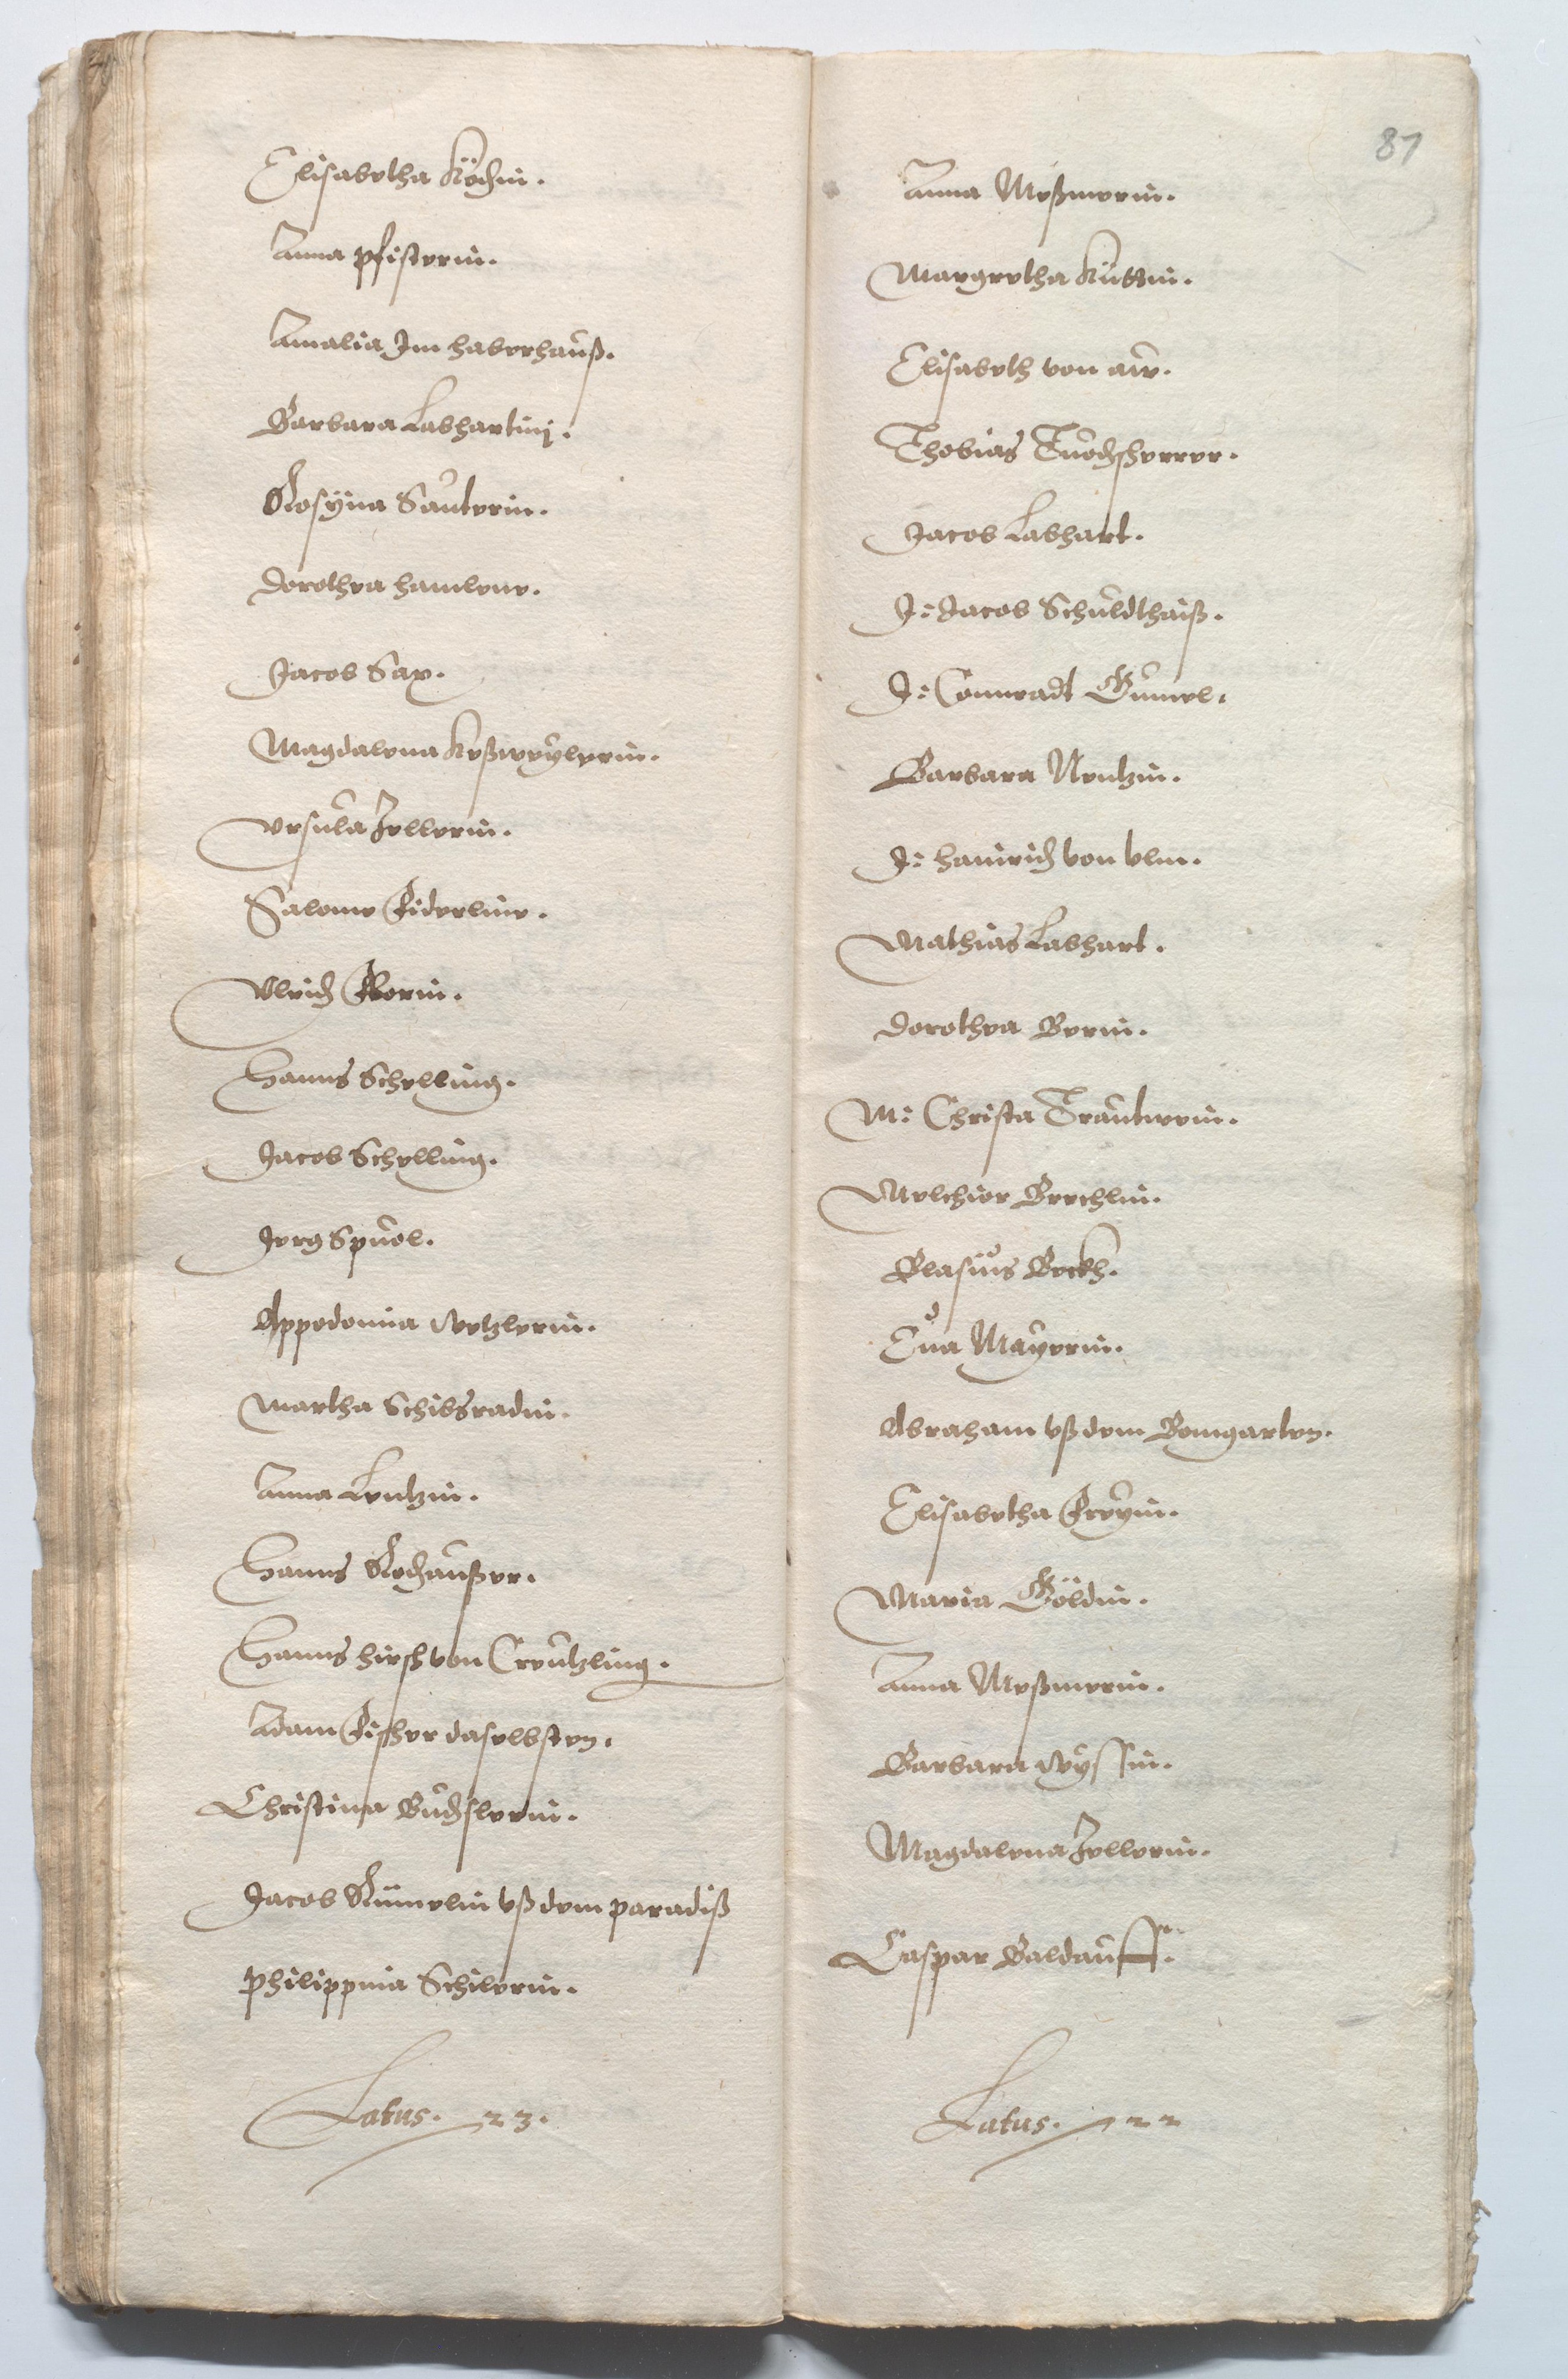 Elisabetha Köchin.
Anna Pfisterin.
Amalia Im haberhauß.
Barbara Labhartinj.
Rosÿna Sauterin.
Dorothea hamlene.
Jacob Sax.
Magdalena Keßweÿlerin.
Vrsula Zellerin.
Salome Fiderline.
Vlrich Korin.
Hanns Schelling.
Jacob Schelling.
Jerg Spuol.
Appodonia Wetzlerin.
Martha Schibsradin.
Anna Lentzin.
Hanns Rochaußer.
Hanns hirsh von Creutzling.
Adam Fisher daselbsten.
Christina Buchslerin.
Jacob Rümelin vß dem paradiß
Philippina Schilerin.
Latus. 23.
87
Anna Meßmerin.
Margretha Küttin.
Elisabeth von aw.
Thobias Tuochsherer.
Jacob Labhart.
J: Jacob Schuldthaiß.
J: Connradt Gumel.
Barbara Nentzin.
J: hainrich von Vlm.
Mathias Labhart.
Dorothea Berin.
M: Christa Trautwein.
Melchior Brechlin.
Blasius Beckh.
Eua Mayerin.
Abraham vß dem Bomgarten.
Elisabetha Freÿin.
Maria Göldin.
Anna Meßmerin.
Barbara Wyssin.
Magdalena Zellerin.
Caspar Baldauff.
Latus. 22